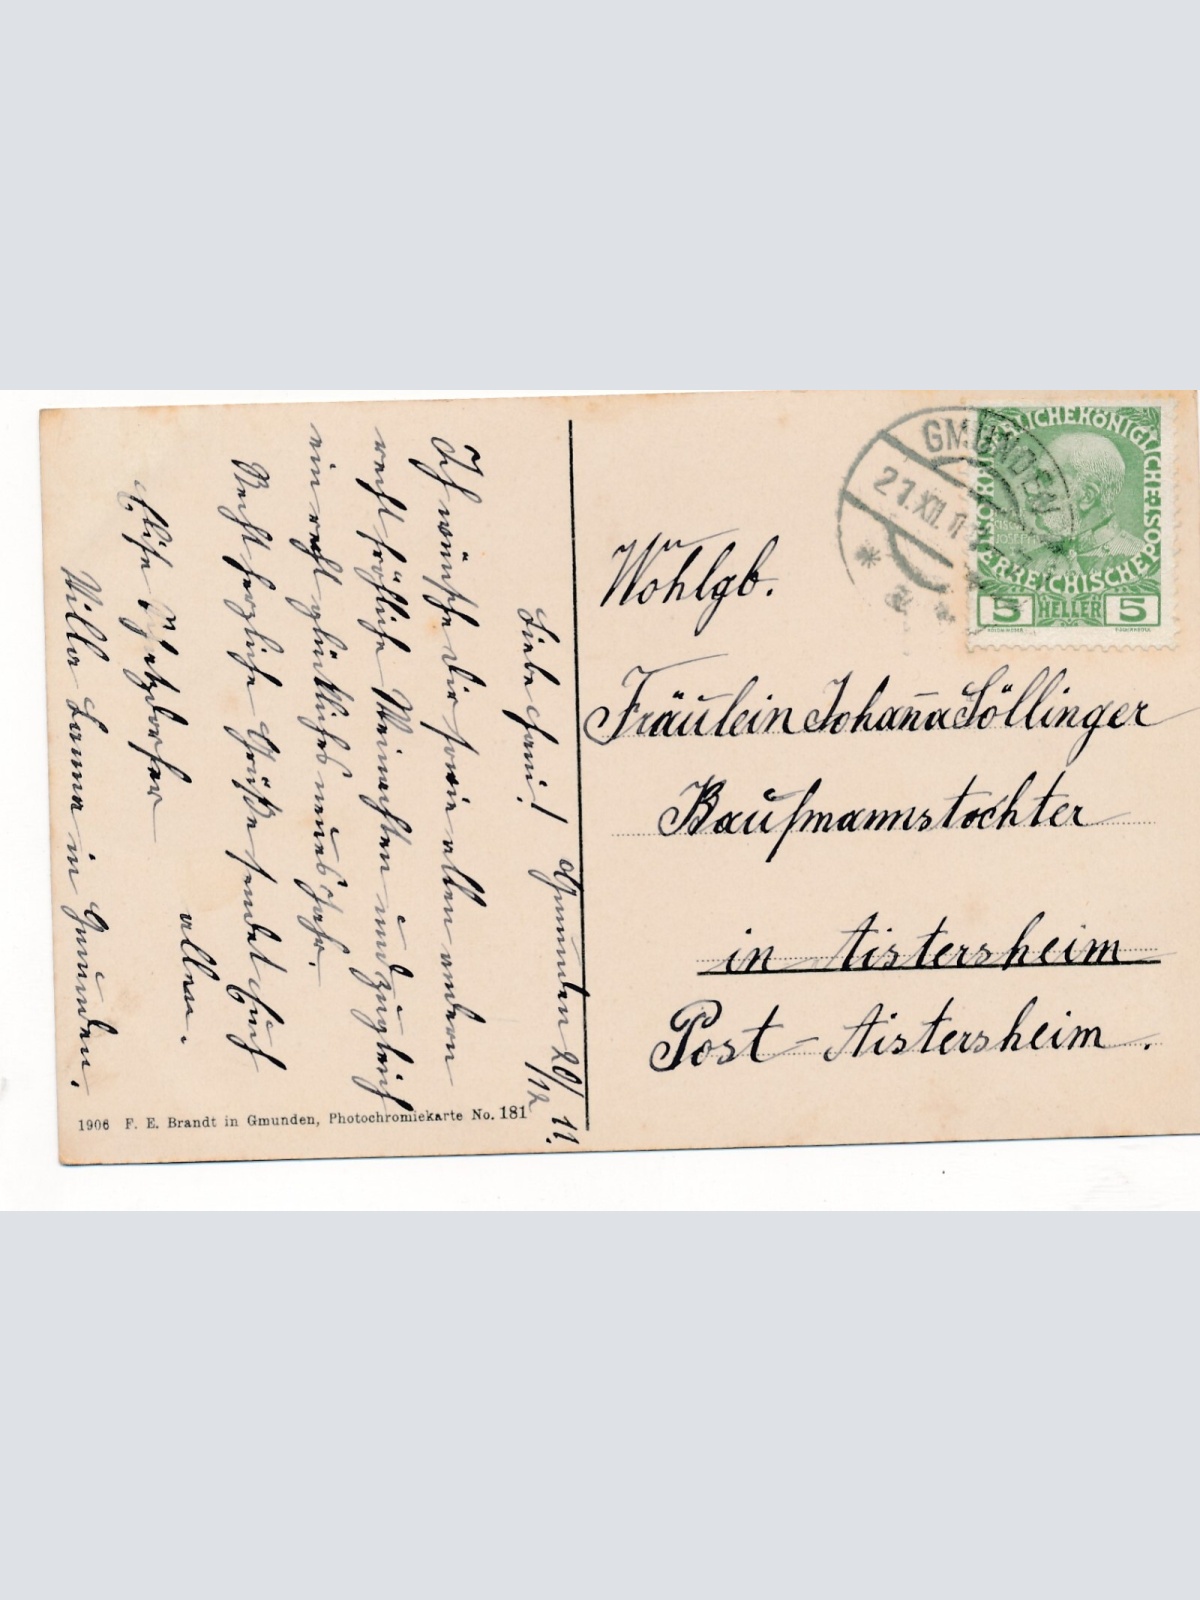 Gmunden 20/12 11.
Liebe Hanni!
Ich wünsche Dir sowie allen andern
recht fröhliche Weinachten und zugleich
ein recht glückliches neues Jahr.
Recht herzliche Grüße sendet Euch
allen.
Elise
Villa Lanna in Gmunden.
1906 F. E. Brandt in Gmunden, Photochromiekarte No. 181
GMUNDEN
21.XII.11
KAISERLICHE KÖNIGLICHE ÖSTERREICHISCHE POST
5 HELLER 5
Wohlgb.
Fräulein Johanna Söllinger
Kaufmannstochter
in Aistersheim
Post - Aistersheim.